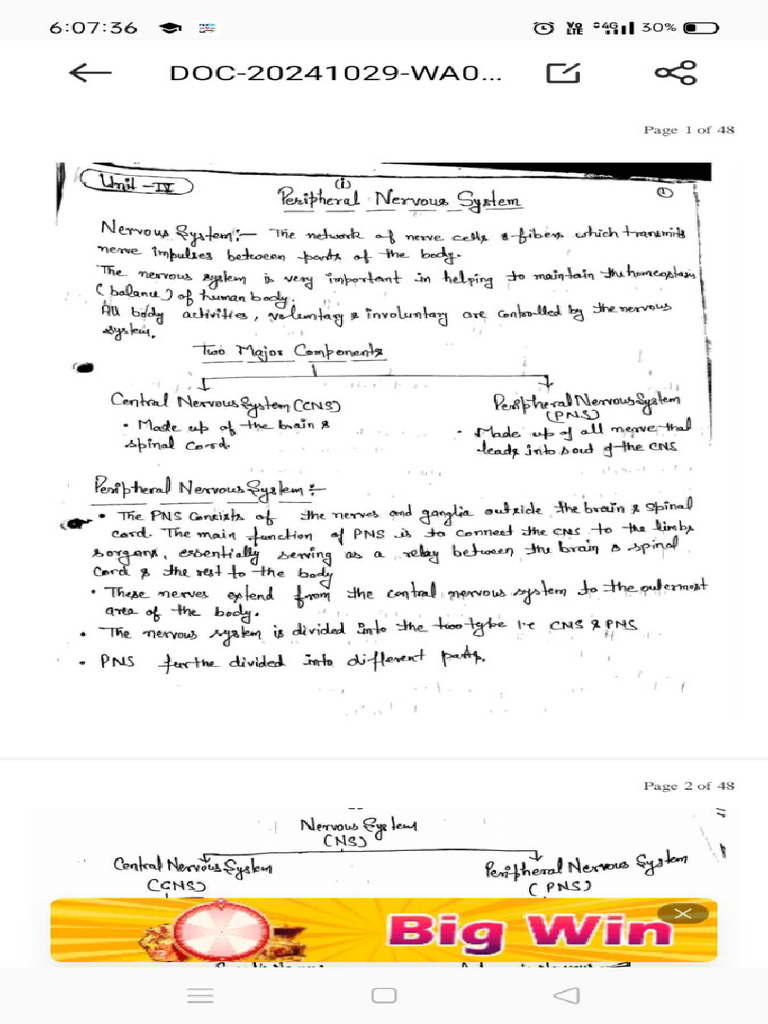 6:07:36 Vo LTE 4G 30%
DOC-20241029-WA0...
Page 1 of 48
Unit-IV
(i)
Peripheral Nervous System
Nervous System:- The network of nerve cells & fibers which transmits
nerve impulses between parts of the body.
The nervous system is very important in helping to maintain the homeostasis
(balance) of human body.
All body activities, voluntary & involuntary are controlled by the nervous
system.
Two Major Components
Central Nervous System (CNS)
• Made up of the brain &
spinal cord.
Peripheral Nervous System
(PNS)
• Made up of all nerve that
leads into & out of the CNS
Peripheral Nervous System:-
• The PNS consists of the nerves and ganglia outside the brain & spinal
cord. The main function of PNS is to connect the CNS to the limbs
& organs, essentially serving as a relay between the brain & spinal
cord & the rest to the body
• These nerves extend from the central nervous system to the outermost
area of the body.
• The nervous system is divided into the two type i.e CNS & PNS
• PNS furthe divided into different parts.
Page 2 of 48
Nervous System
(NS)
Central Nervous System
(CNS)
Peripheral Nervous System
(PNS)
Big Win